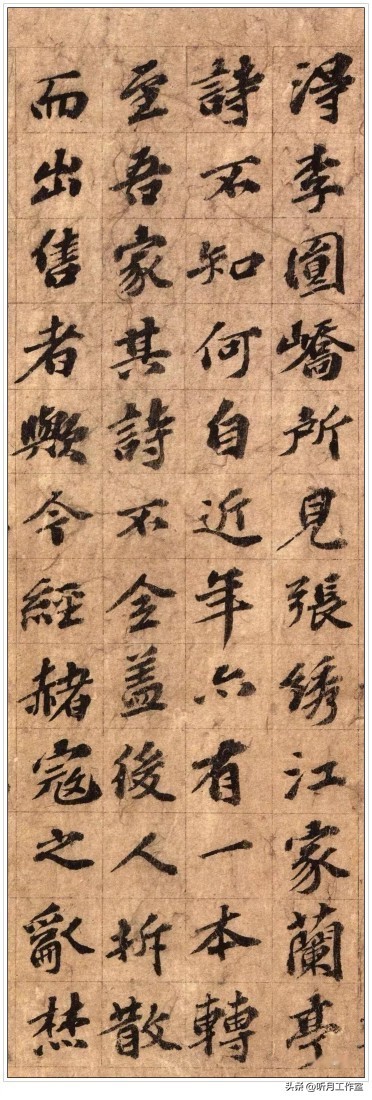 淂李圓嶠所見張綉江家蘭亭
詩不知何自近年亦有一本轉
至吾家其詩不全盖後人拆散
而出售者歟今經赭寇之亂焚
头条 @听月工作室